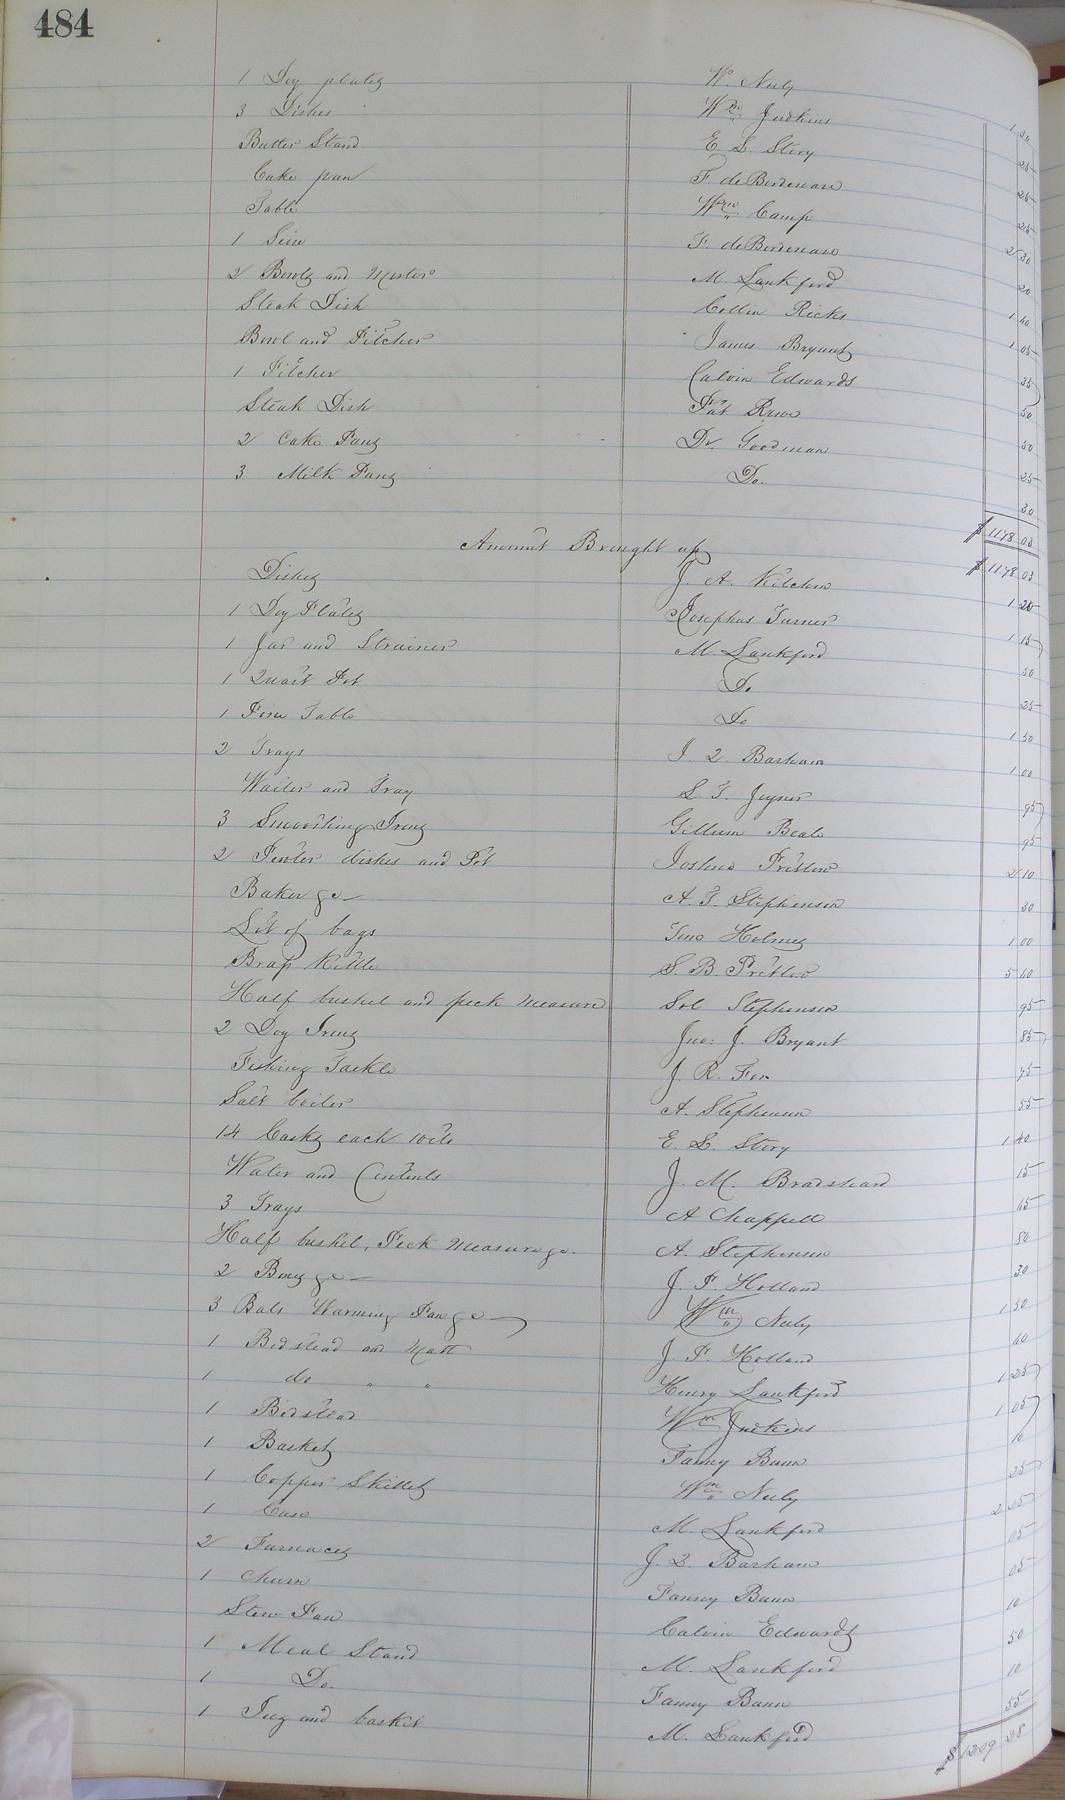 484
1 Doz plates W. Neely 1 20
3 Dishes Wm Judkins 25
Butter Stand E. S. Story 25
Cake pan F. deBordenave 25
Table Wm Camp 2 30
1 Seive F. deBordenave 20
2 Bowls and Morter M. Lankford 1 40
Steak Dish Collin Ricks 1 05
Bowl and Pitcher James Bryant 35
1 Pitcher Calvin Edwards 50
Steak Dish Pat Rowe 50
2 Cake Pans Dr. Goodman 25
3 Milk Pans Do. 30
$ 1178 03
Amount Brought up $ 1178 03
Dishes J. A. Kitchen 1 25
1 Doz Plates Josephus Turner 1 15
1 Jar and Strainer M Lankford 50
1 Quart Pot Do 25
1 Pine Table Do 1 50
2 Trays J. Q Barham 1 00
Waiter and Tray S. T. Joyner 95
3 Smoothing Irons Gillum Beale 95
2 Pewter dishes and Pot Joshua Pretlow 2 10
Baker &c A. T. Stephenson 30
Lot of bags Holmes 1 00
Brass Kettle S. B. Pretlow 5 60
Half bushel and peck measure Sol Stephenson 95
2 Dog Irons Jno: J. Bryant 85
Fishing Tackle J. R. 75
Salt boiler A. Stephenson 55
14 Casks each 10cts E. S. Story 1 40
Water and Contents J. M. Bradshaw 15
3 Trays A Chappell 15
Half bushel, Peck measure &c. A. Stephenson 80
2 &c J. F. Holland 30
3 Warming Pan &c Wm Neely 1 50
1 Bedstead and Matt J F. Holland 60
1 do " " Henry Lankford 1 25
1 Bedstead Wm Judkins 1 05
1 Basket Fanny Bunn 10
1 Copper Skillet Wm Neely 25
1 Case M. Lankford 2 25
2 Furnaces J. Q Barham 05
1 Churn Fanny Bunn 05
Stew Pan Calvin Edwards 10
1 Meal Stand M. Lankford 50
1 Do. Fanny Bunn 10
1 Jug and basket M. Lankford 55
$ 1209 28